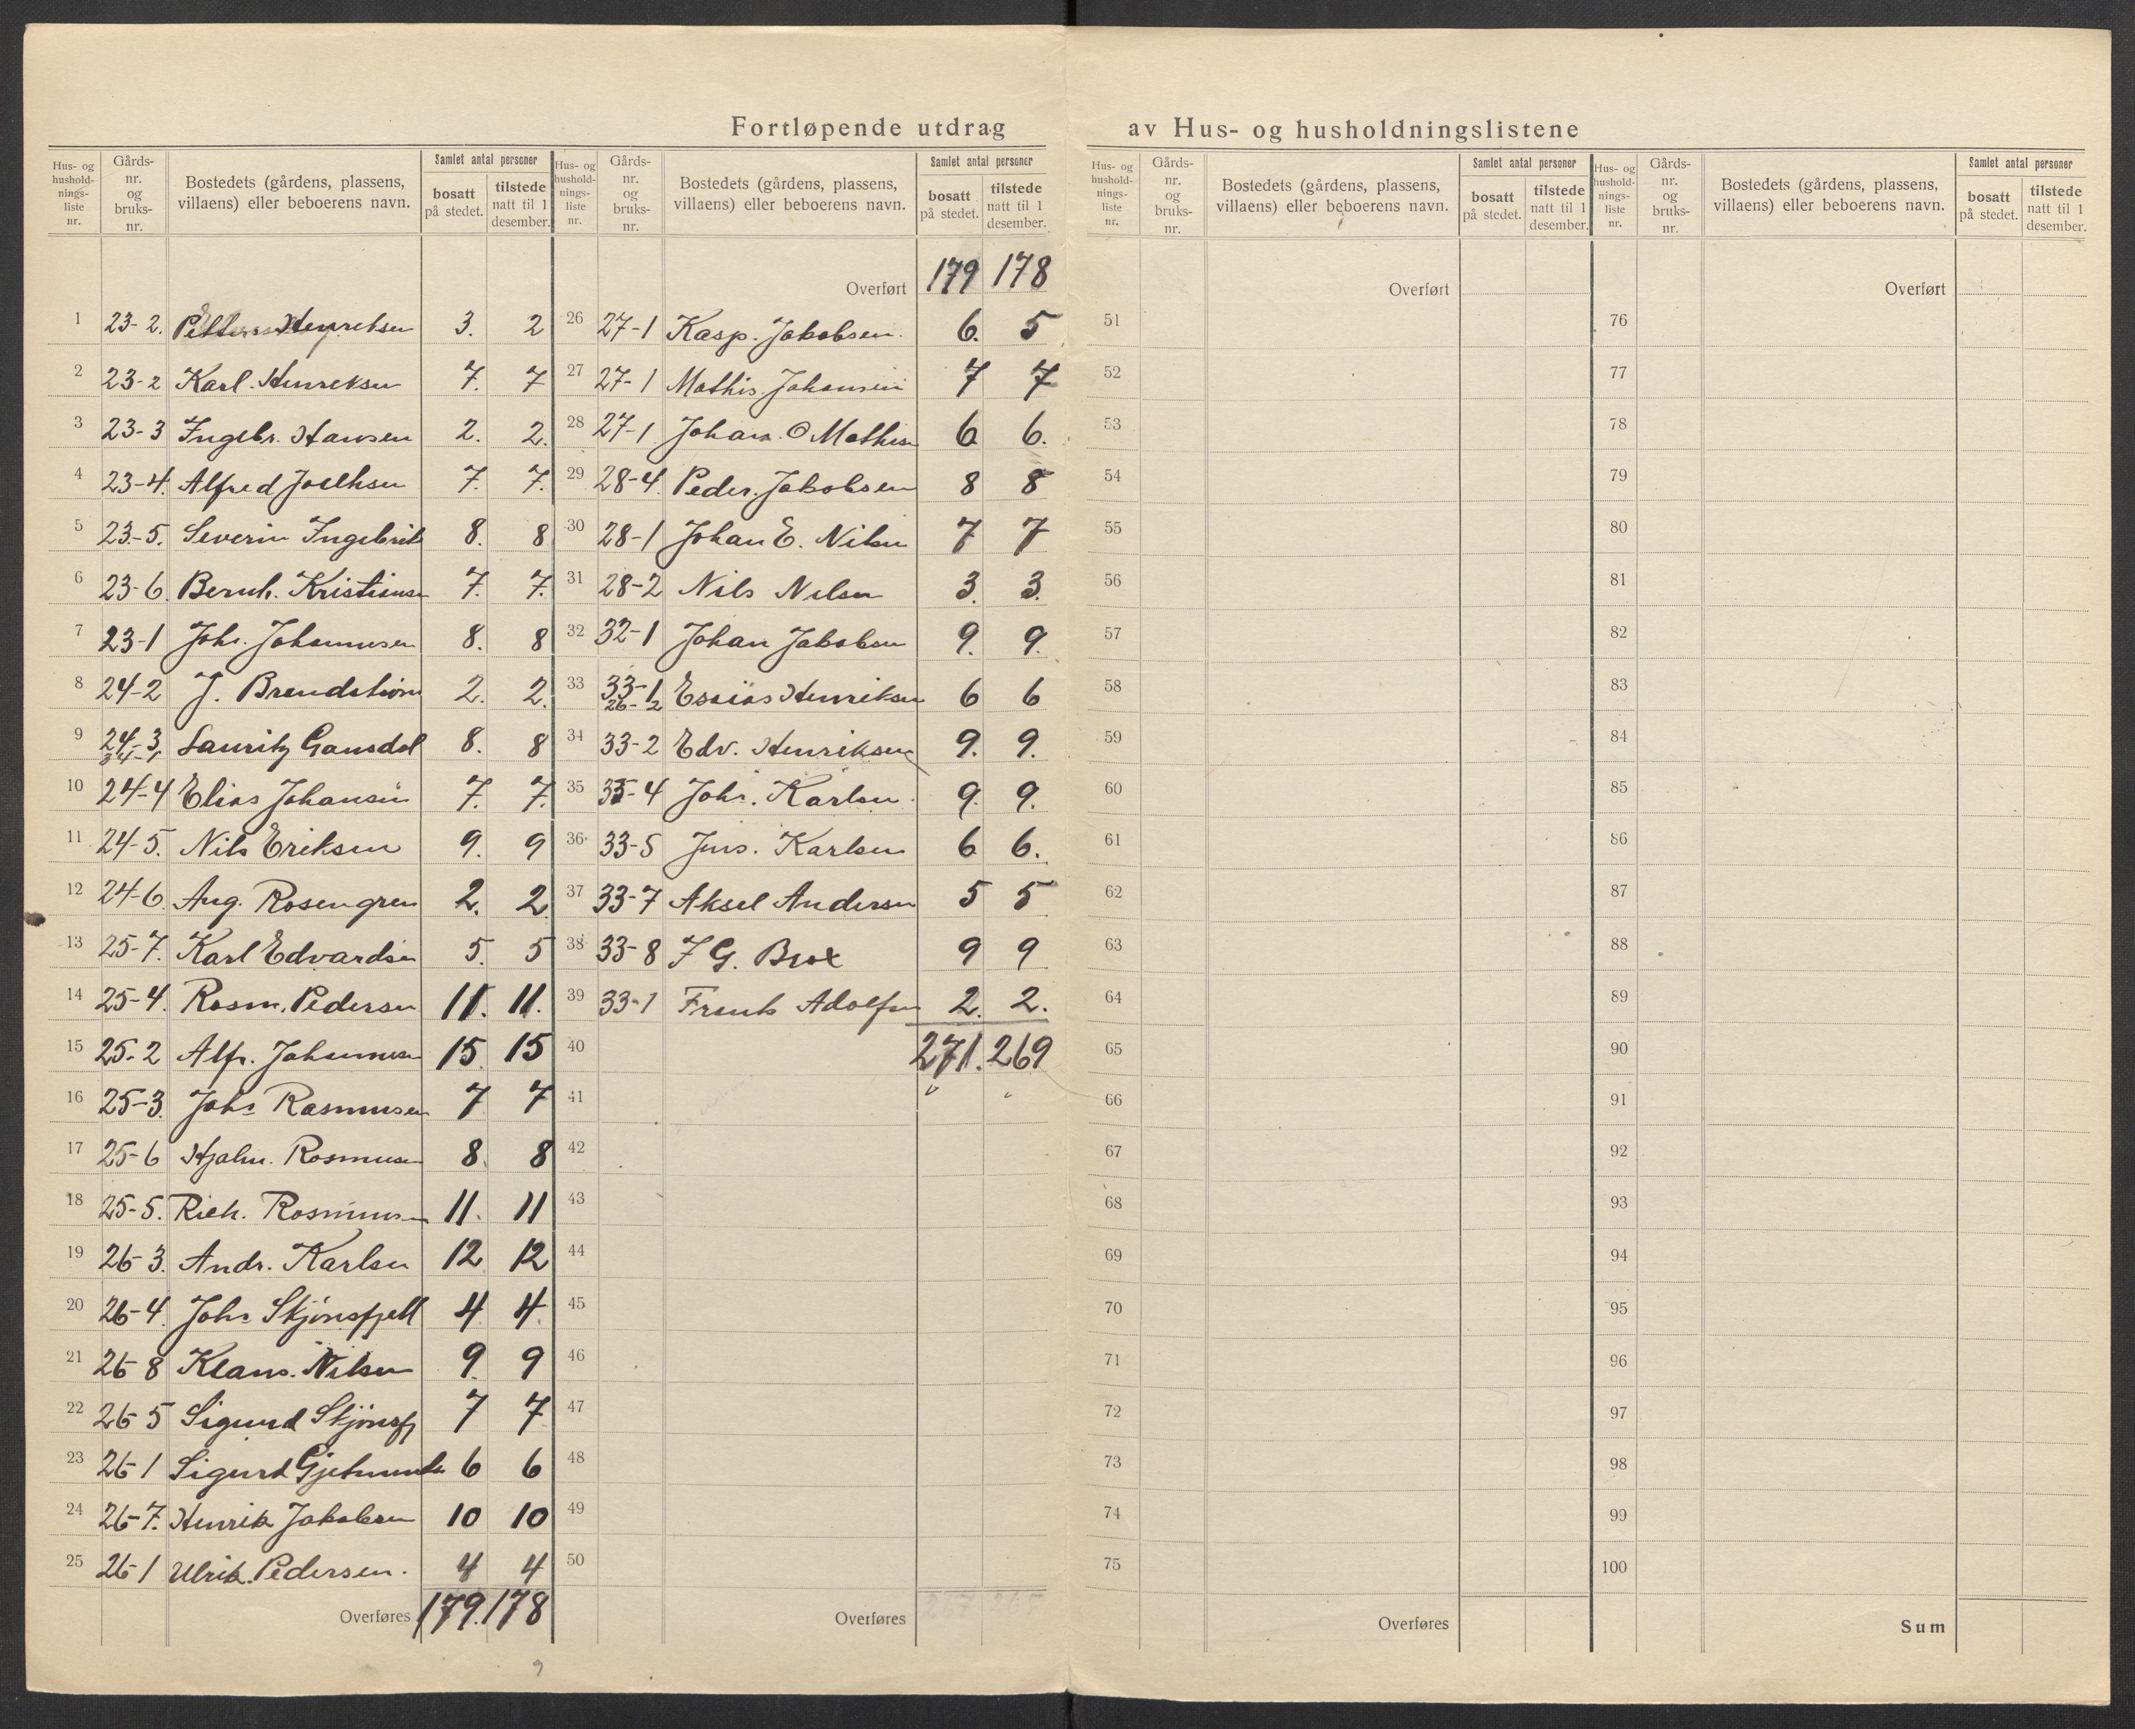 Fortløpende utdrag av Hus- og husholdningslistene
Hus- og hushold-nings-liste nr. Gårds-nr. og bruks-nr. Bostedets (gårdens, plassens, villaens) eller beboerens navn. Samlet antal personer bosatt på stedet. tilstede natt til 1 desember.
1 23-2. Henreksen 3. 2
2 23-2 Karl. Henreksen 7. 7
3 23-3 Ingebr. Hansen 2. 2.
4 23-4. Alfred Joelksen 7. 7.
5 23-5. Severin Ingebrik 8. 8
6 23-6. Bernh. Kristianse 7. 7.
7 23-1 Johs. Johannesen 8. 8
8 24-2 J. Brendstrøm 2. 2.
9 24-3, 34-1 Lauritz Gausdal 8. 8
10 24-4 Elias Johansen 7. 7.
11 24-5. Nils Eriksen 9. 9
12 24-6. Aug. Rosengren 2. 2
13 25-7. Karl Edvardsen 5. 5
14 25-4. Rasm. Pedersen 11. 11.
15 25-2 Alfr. Johannesen 15 15
16 25-3. Johs Rasmusen 7 7
17 25-6 Hjalm. Rasmusen 8 8
18 25-5. Rich. Rasmusen 11. 11
19 26-3. Andr. Karlsen 12 12
20 26-4. Johs Skjønsfjell 4 4
21 26-8 Klaus. Nilsen 9. 9
22 26-5 Sigurd Skjønsfj 7 7
23 26-1 Sigurd Gjetmunds 6 6
24 26-7. Henrik Jakobsen 10 10
25 26-1 Ulrik. Pedersen. 4 4
Overføres 179. 178
Hus- og hushold-nings-liste nr. Gårds-nr. og bruks-nr. Bostedets (gårdens, plassens, villaens) eller beboerens navn. Samlet antal personer bosatt på stedet. tilstede natt til 1 desember.
Overført 179 178
26 27-1 Kasp. Jakobsen. 6. 5
27 27-1 Mathis Johansen 7 7
28 27-1 Johan. O Mathisen 6 6.
29 28-4 Peder. Jakobsen 8 8
30 28-1 Johan E. Nilsen 7 7
31 28-2 Nils Nilsen 3. 3.
32 32-1 Johan Jakobsen 9. 9.
33 33-1 26-2 Esaias Henriksen 6 6
34 33-2 Edv. Henriksen 9. 9.
35 33-4 Johs. Karlsen. 9. 9.
36 33-5 Jens. Karlsen 6 6.
37 33-7 Aksel Andersen 5 5
38 33-8 J G. Brox 9 9
39 33-1 Frants Adolfsen 2. 2.
40 271. 269
41
42
43
44
45
46
47
48
49
50
Overføres 267 265
Hus- og hushold-nings-liste nr. Gårds-nr. og bruks-nr. Bostedets (gårdens, plassens, villaens) eller beboerens navn. Samlet antal personer bosatt på stedet. tilstede natt til 1 desember.
Overført
51
52
53
54
55
56
57
58
59
60
61
62
63
64
65
66
67
68
69
70
71
72
73
74
75
Overføres
Hus- og hushold-nings-liste nr. Gårds-nr. og bruks-nr. Bostedets (gårdens, plassens, villaens) eller beboerens navn. Samlet antal personer bosatt på stedet. tilstede natt til 1 desember.
Overført
76
77
78
79
80
81
82
83
84
85
86
87
88
89
90
91
92
93
94
95
96
97
98
99
100
Sum
9